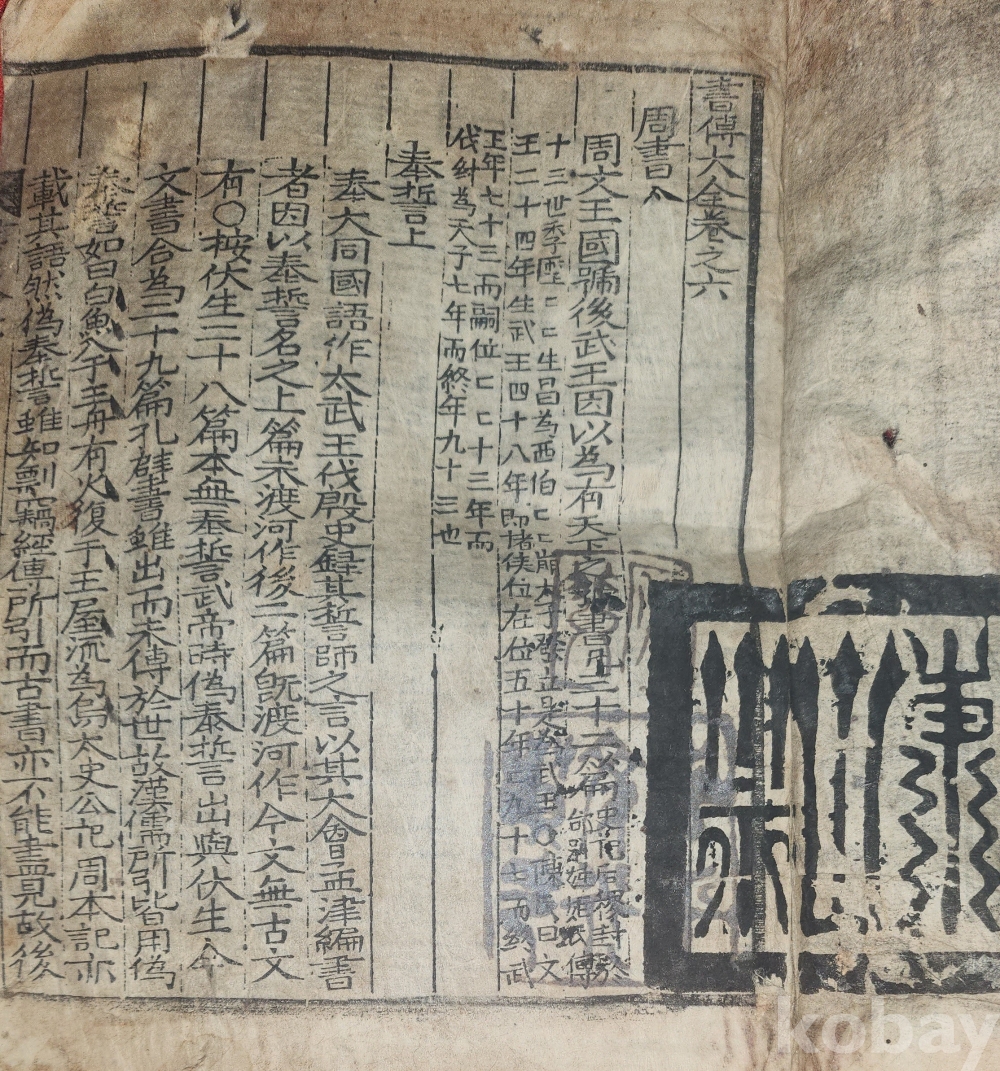 書傳大全卷之六
周書
周文王國號後武王因以為有天下之號書凡三十二篇
史記后稷封於
邰別姓姬氏傳
十三世季歷〻〻生昌為西伯〻〻崩太子發立是為武王〇陳氏曰文
王二十四年生武王四十八年即諸侯位在位五十年九十七而終武
王年七十三而嗣位〻〻十三年而
伐紂為天子七年而終年九十三也
泰誓上
泰大同國語作太武王伐殷史錄其誓師之言以其大會孟津編書
者因以泰誓名之上篇未渡河作後二篇旣渡河作今文無古文
有〇桉伏生二十八篇本無泰誓武帝時偽泰誓出與伏生今
文書合為二十九篇孔壁書雖出而未傳於世故漢儒所引皆用偽
泰誓如曰白魚入于王舟有火復于王屋流為烏太史公記周本記亦
載其語然偽泰誓雖知剽竊經傳所引而古書亦不能盡見故後
kobay